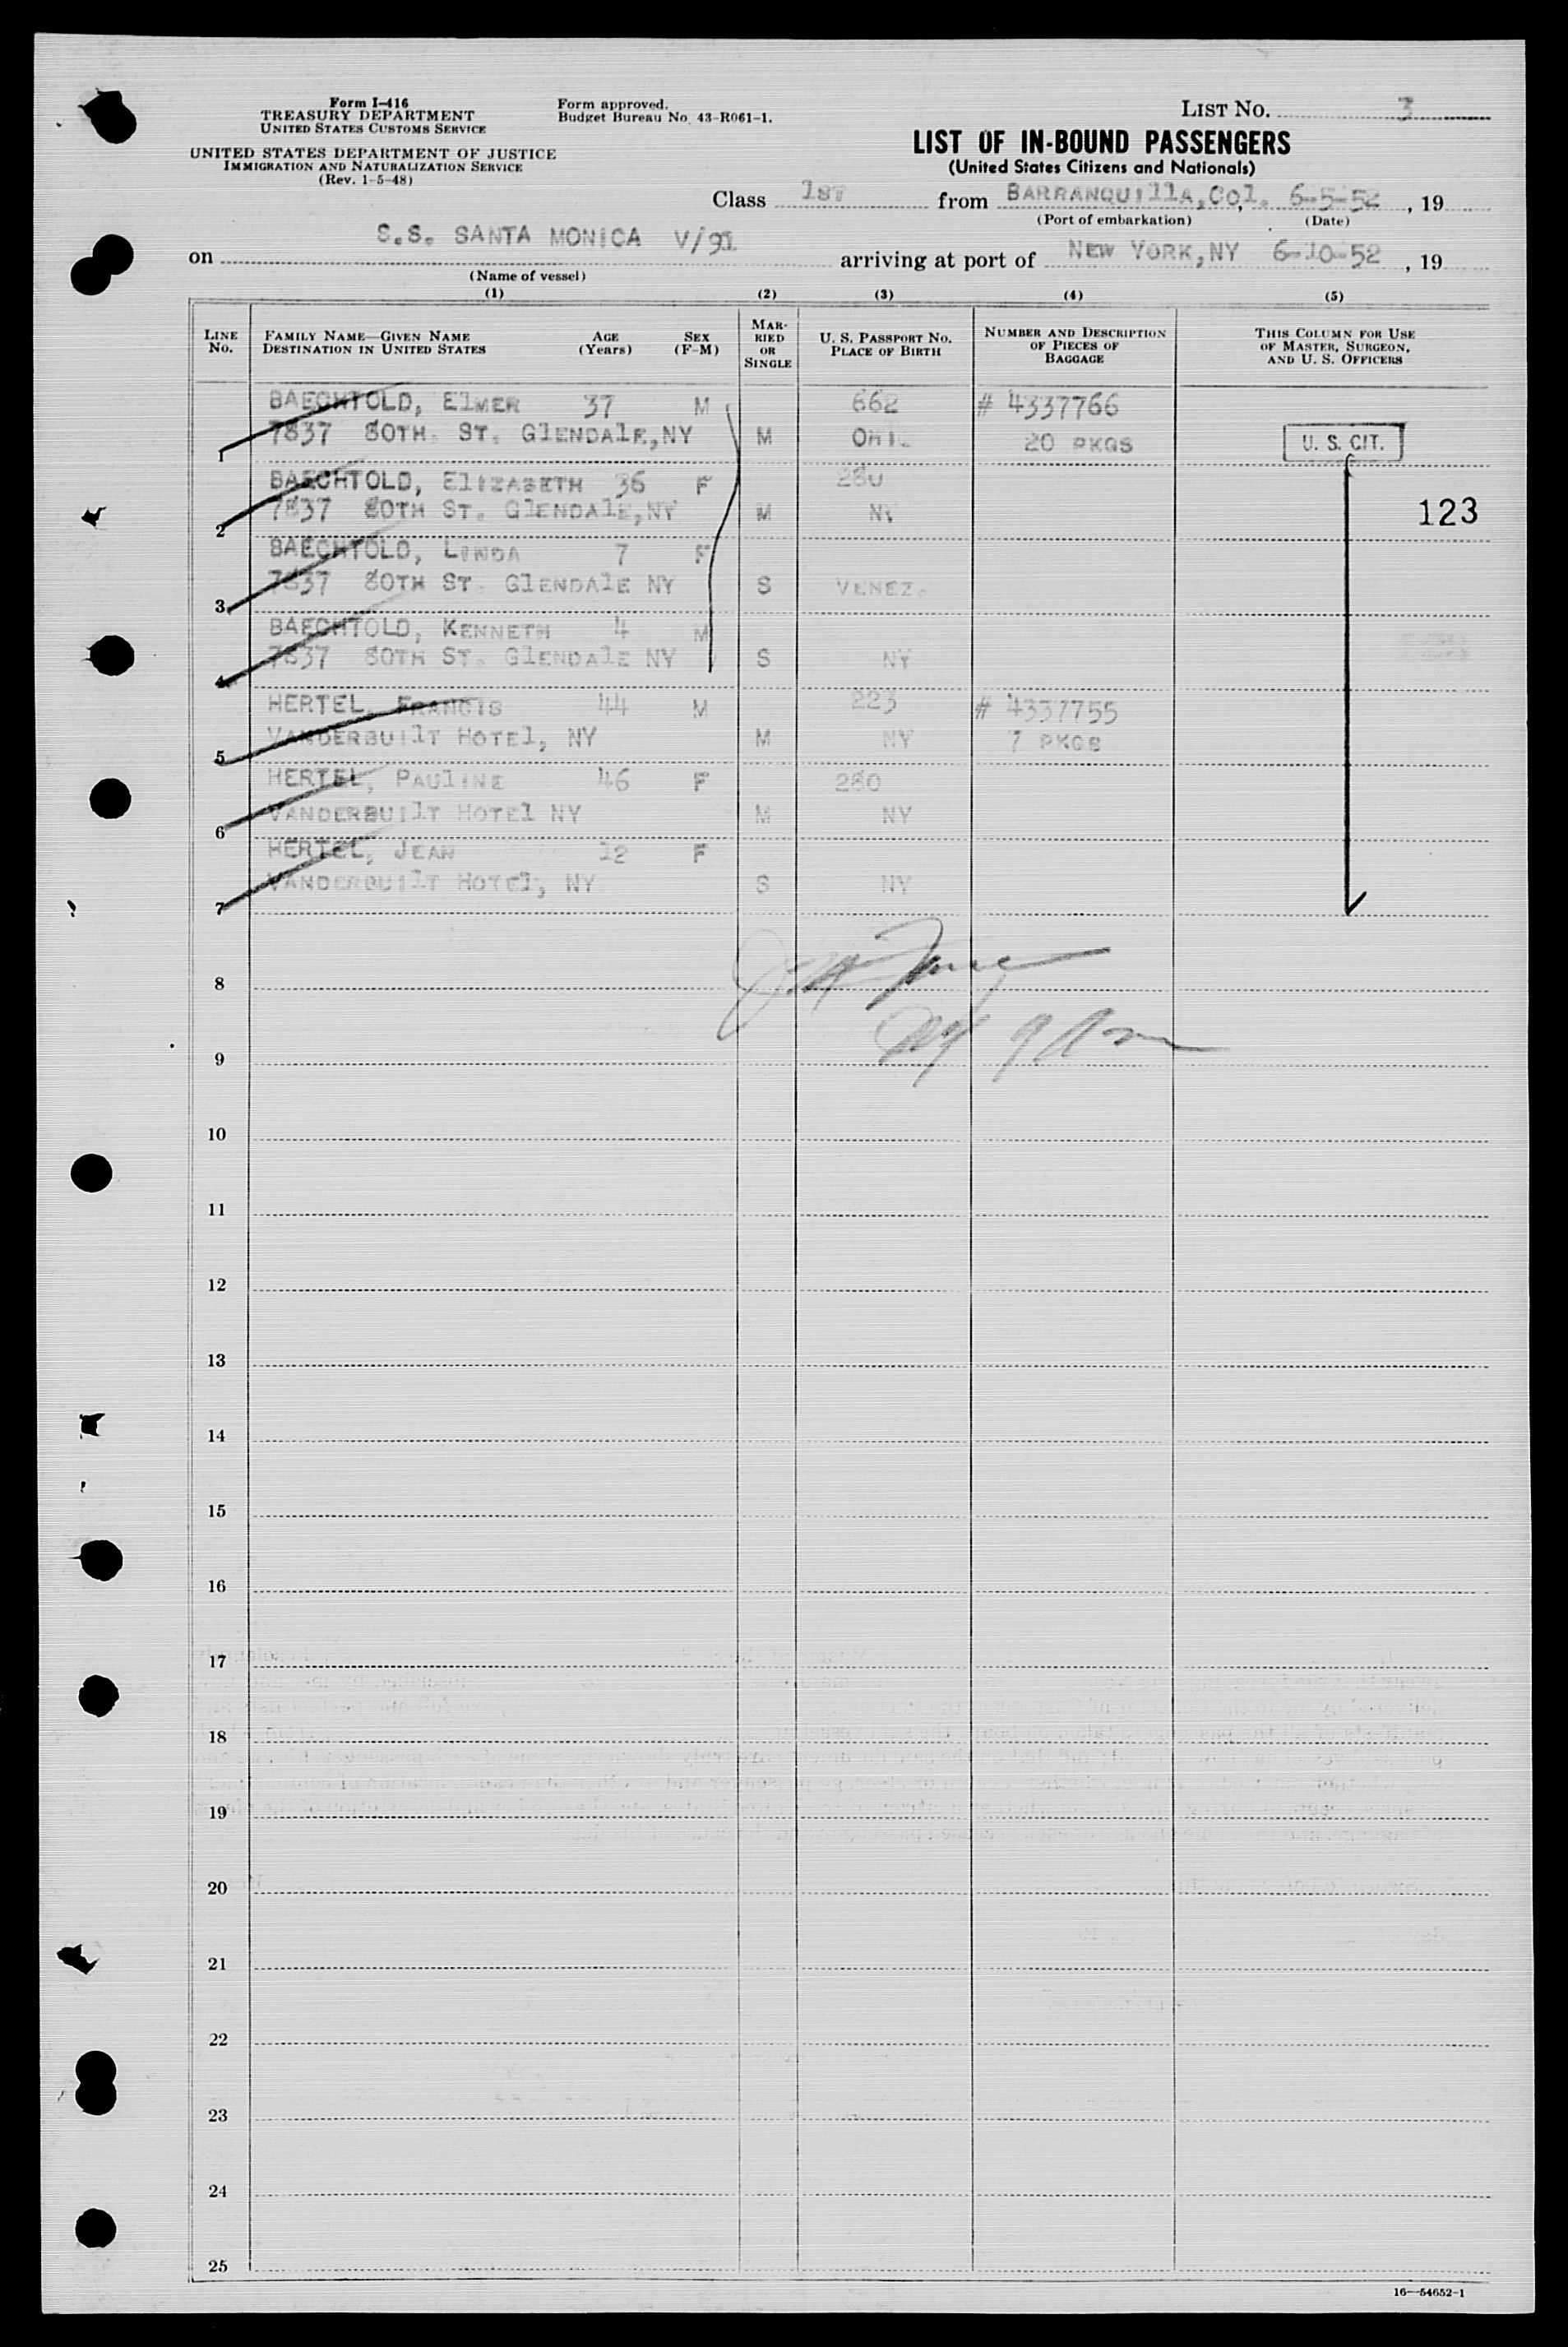 Form I-416
TREASURY DEPARTMENT
UNITED STATES CUSTOMS SERVICE
UNITED STATES DEPARTMENT OF JUSTICE
IMMIGRATION AND NATURALIZATION SERVICE
(Rev. 1-5-48)
Form approved.
Budget Bureau No. 43-R061-1.
LIST NO. 3
LIST OF IN-BOUND PASSENGERS
(United States Citizens and Nationals)
Class 1ST from BARRANQUILLA, COL. 6-5-52, 19
(Port of embarkation) (Date)
on S.S. SANTA MONICA V/91 arriving at port of NEW YORK, NY 6-10-52, 19
(Name of vessel)
(1) (2) (3) (4) (5)
LINE NO. FAMILY NAME—GIVEN NAME DESTINATION IN UNITED STATES AGE (Years) SEX (F-M) MARRIED OR SINGLE U. S. PASSPORT NO. PLACE OF BIRTH NUMBER AND DESCRIPTION OF PIECES OF BAGGAGE THIS COLUMN FOR USE OF MASTER, SURGEON, AND U. S. OFFICERS
BAECHTOLD, ELMER 37 M 662 # 4337766
1 7837 80TH. ST. GLENDALE, NY M OHIO 20 PKGS U. S. CIT.
BAECHTOLD, ELIZABETH 36 F 280
2 7837 80TH ST. GLENDALE, NY M NY 123
BAECHTOLD, LINDA 7 F
3 7837 80TH ST. GLENDALE NY S VENEZ.
BAECHTOLD, KENNETH 4 M
4 7837 80TH ST. GLENDALE NY S NY
HERTEL, FRANCIS 44 M 223 # 4337755
5 VANDERBUILT HOTEL, NY M NY 7 PKGS
HERTEL, PAULINE 46 F 280
6 VANDERBUILT HOTEL NY M NY
HERTEL, JEAN 12 F
7 VANDERBUILT HOTEL, NY S NY
8
9
10
11
12
13
14
15
16
17
18
19
20
21
22
23
24
25
16—54652-1